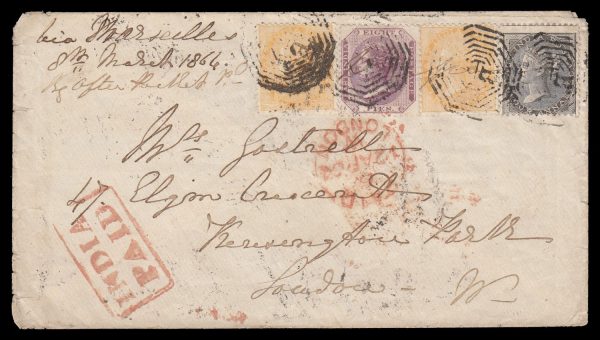 via Marseilles
8th March 1864
By After Packet
EIGHT
PIES
Mrs Gostrell
47 Elgin Crescent
Kensington Park
London - W.
INDIA
PAID
LONDON
PAID